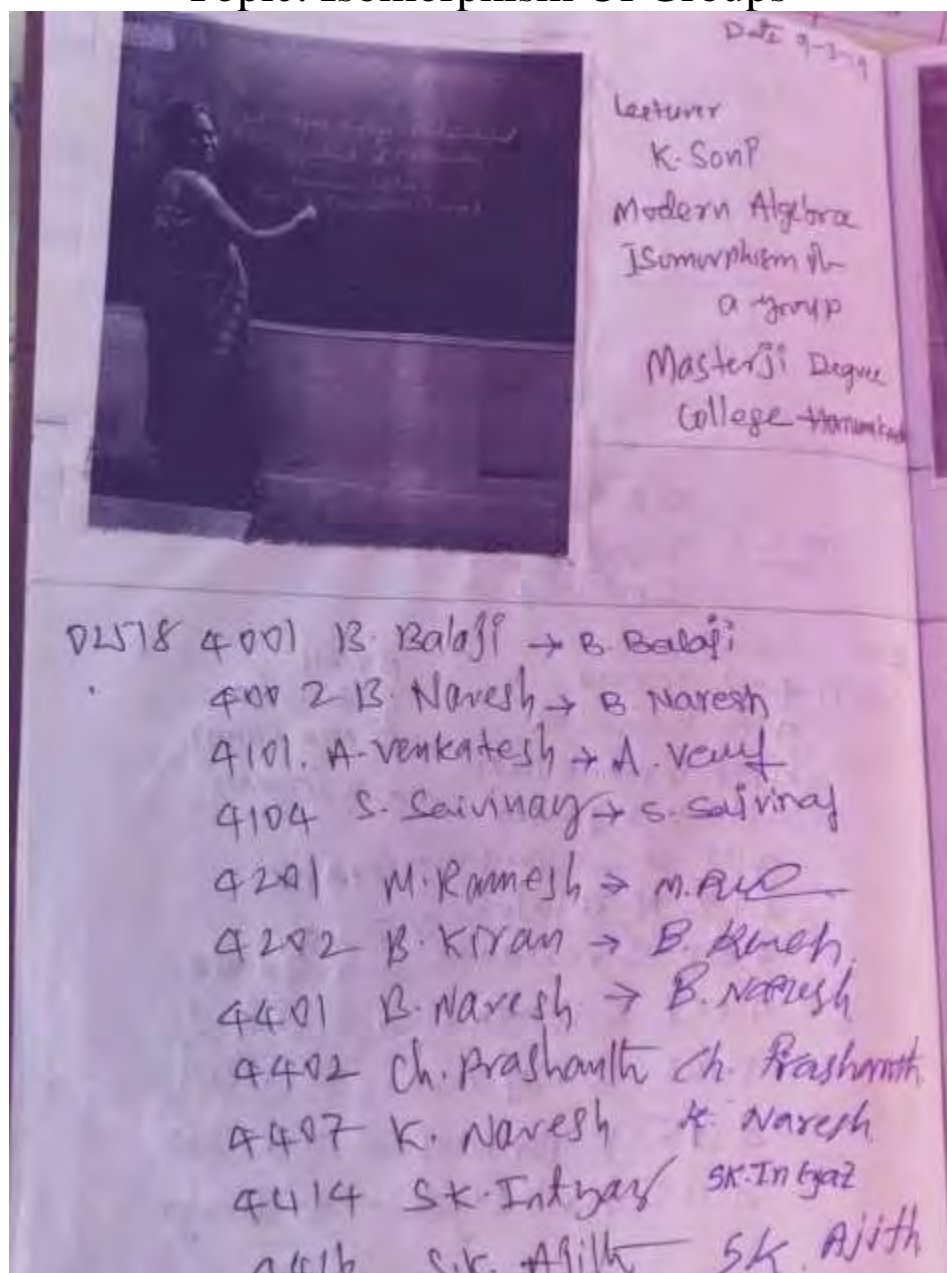 Topic: Isomorphism Of Groups
Date 9-
Lecturer
K. SonP
Modern Algebra
Isomorphism
a group
Masterji Degree
College
4001 B. Balaji → B. Balaji
4002 B. Naresh → B Naresh
4101. A. Venkatesh → A.
4104 S. Saivinay → S. Saivinay
4201 M. Ramesh → M.
4202 B. Kiran → B.
4401 B. Naresh → B. Naresh
4402 Ch. Prashanth Ch. Prashanth
4407 K. Naresh K. Naresh
4414 SK. Intyaz SK. Intyaz
S.K. SK. Ajith